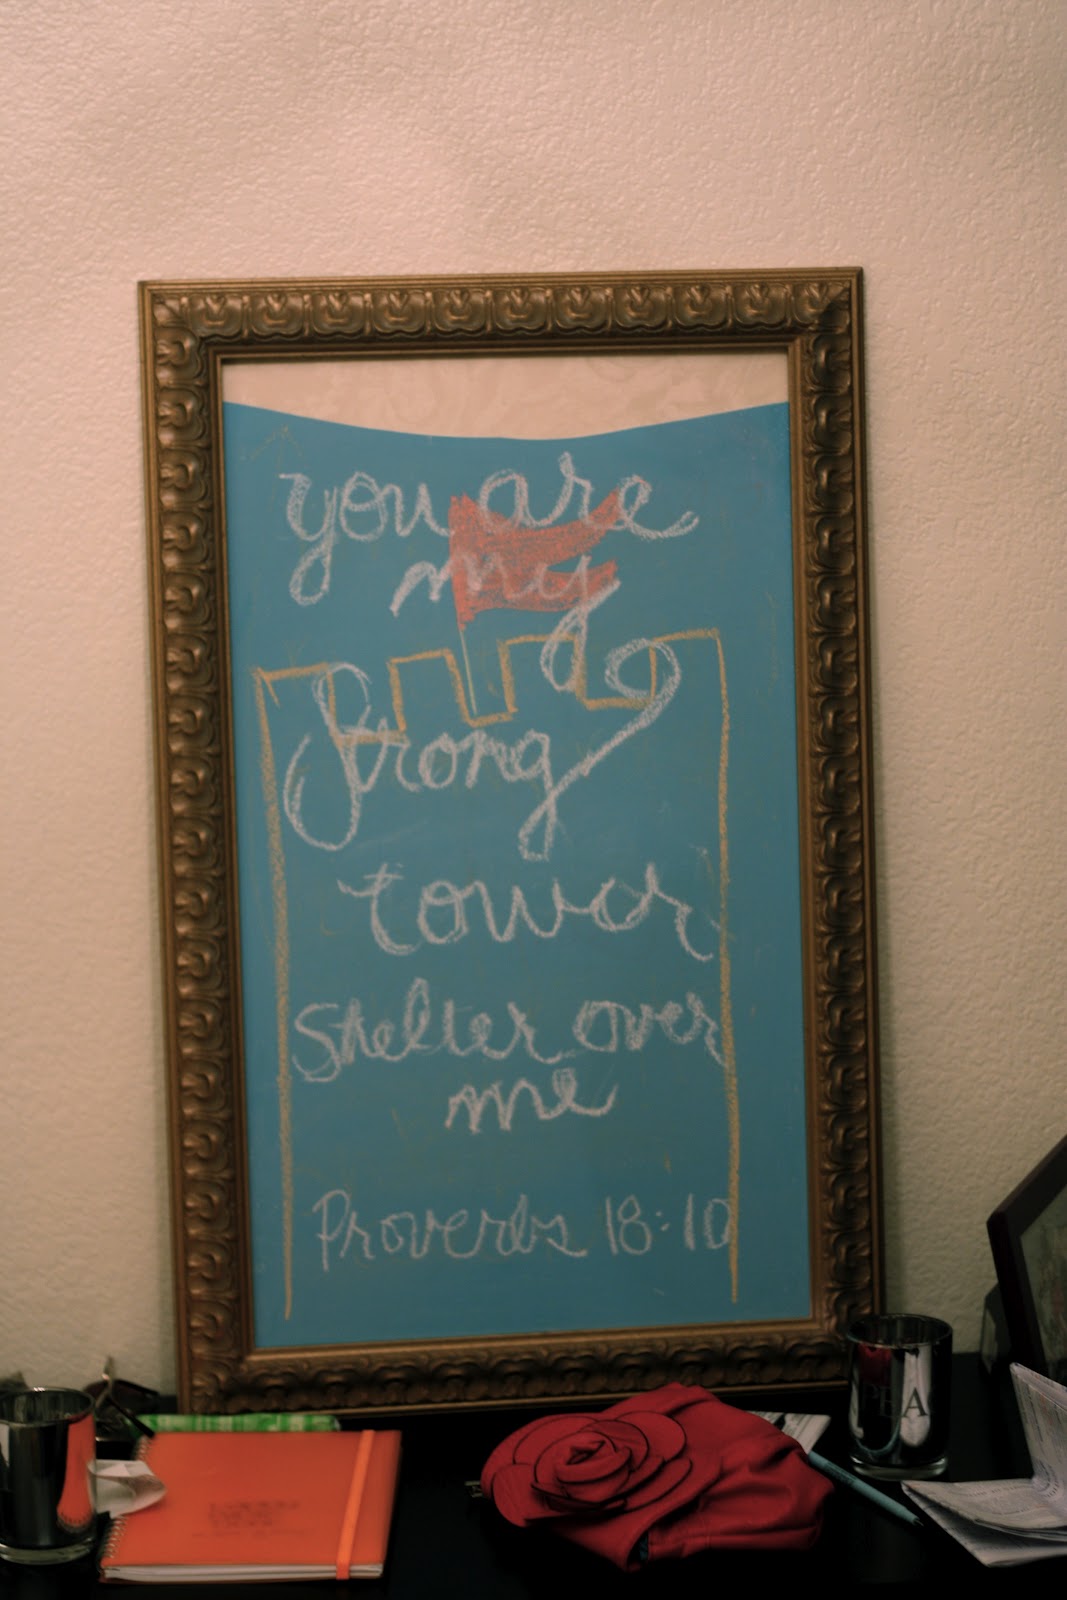 you are
my
Strong
tower
Shelter over
me
Proverbs 18:10